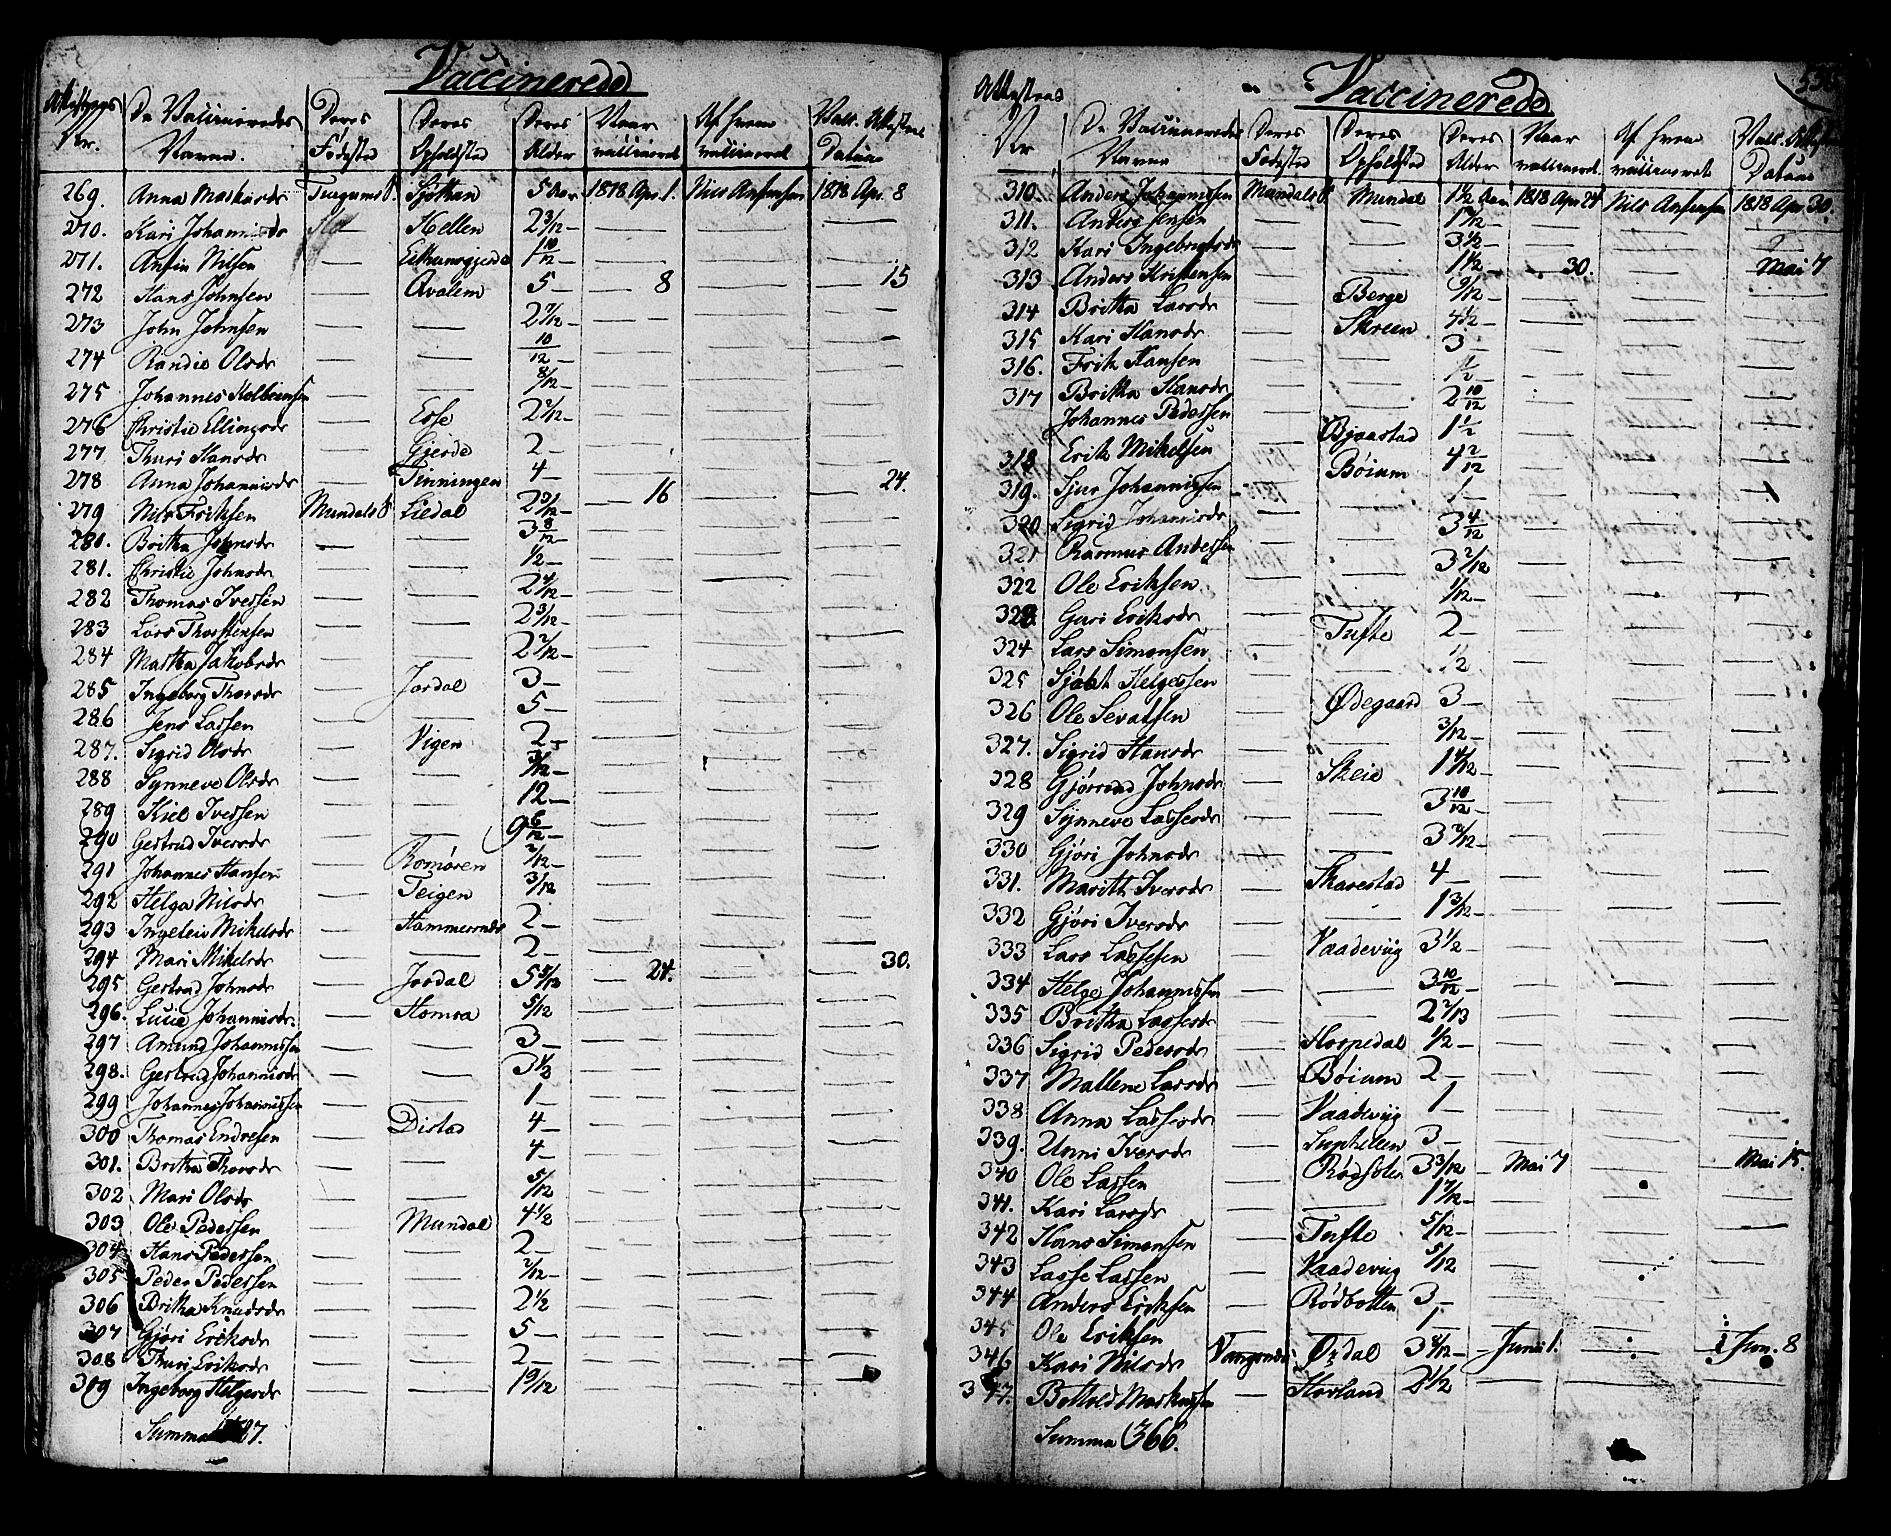 Vaccinerede
Attestens Nr. De Vaccineredes Navne. Deres Fødested Deres Opholdsted Deres Alder Naar vaccineret Af hvem vaccineret Vacc. Attestens Datum
269. Anna Markusdr Sjøthun 5 Aar 1818 Apr. 1. Nils Ansensen 1818 Apr. 8
270. Kari Johannisdr — Hellen 2 3/12 — — — —
271. Ansin Nilsen — 1 10/12 — — — —
272 Hans Johnsen — Qvalem 5 — — 8 — — 15
273 John Johnsen — — 2 7/12 — — — —
274 Randie Olsdr — — 10/12 — — — —
275 Johannes Kolbeinsen — — 8/12 — — — —
276 Christie Ellingsdr — Esse 2 2/12 — — — —
277 Thuri Hansdr — Gjerde 2 — — — —
278 Anna Johannisdr — Tinningen 4 — — — —
279 Nils Eriksen Mundals S. Liedal 2 9/12 — — 16 — — 24.
281. Britha Johnsdr — — 3 8/12 — — — —
281. Christie Johnsdr — — 1/2 — — — —
282 Thomas Iversen — — 2 4/12 — — — —
283 Lars Thorstensen — — 2 3/12 — — — —
284 Martha Jakobsdr — — 2 2/12 — — — —
285 Ingeborg Thorsdr — Jordal 3 — — — —
286 Jens Lassen — — 5 — — — —
287. Sigrid Olsdr — Vigen 2 — — — —
288 Synneve Olsdr — — 3/12 — — — —
289 Kiel Iversen — — 12 — — — —
290 Gertrud Iversdr — — 9 6/12 — — — —
291 Johannes Hansen — Romøren 2/12 — — — —
292 Helga Nilsdr — Teigen 3/12 — — — —
293 Ingeleiv Mikelsdr — Hammersnes 2 — — — —
294 Mari Mikelsdr — — 2 — — — —
295 Gertrud Johnsdr — Jordal 5 5/12 — 24. — — 30.
296. Lucie Johannisdr. — Homra 5/12 — — — —
297 Amund Johannissen — — 3 — — — —
298. Gertrud Johannisdr — — 3 1/3 — — — —
299 Johannes Johannissen — — 1 — — — —
300 Thomas Endresen — Distad 4 — — — —
301. Britha Thorsdr — — 4 — — — —
302 Mari Olsdr — — 5/12 — — — —
303 Ole Pedersen — Mundal 4 1/2 — — — —
304 Hans Pedersen — — 2 — — — —
305 Peder Pedersen — — 2/12 — — — —
306 Britha Knudsdr — — 2 1/2 — — — —
307 Gjøri Eriksdr — — 5 — — — —
308 Thuri Eriksdr — — 2 — — — —
309 Ingeborg Helgesdr — — 1 9/12 — — — —
Summa 87.
Vaccinerede
Attestens Nr De Vaccineredes Navne Deres Fødested Deres Opholdsted Deres Alder Naar vaccineret Af hvem vaccineret Vacc. Attestens Datum
310. Anders Johannissen Mundals S Mundal 1 1/2 Aar 1818 Apr 24 Nils Ansensen 1818 Apr 30.
311. Anders Jensen — — — — — —
312 Kari Ingebrigtsdr — — 3 1/2 — — — —
313 Anders Kristensen — — 1 1/2 — 30. — Mai 7
314 Britha Larsdr — Berge 9/12 — — — —
315 Kari Hansdr — Skreen 4 1/2 — — — —
316. Erik Hansen — — 3 — — — —
317 Britha Hansdr — — 1/2 — — — —
Johannes Pedersen — — 2 10/12 — — — —
318 Erik Mikelsen — Bjaastad 1 1/2 — — — —
319. Sjur Johannissen — Bøium 4 2/12 — — — —
320 Sigrid Johannisdr — — 1 — — — —
321 Rasmus Andersen — — 3 4/12 — — — —
322 Ole Eriksen — — 3 2/12 — — — —
323. Guri Eriksdr — — 1/12 — — — —
324 Lars Simonsen — Tufte 2 — — — —
325 Sjøat Helgessen — — 1/2 — — — —
326 Ole Sevatsen — Ødegaard 3 — — — —
327. Sigrid Hansdr — — 3/12 — — — —
328 Gjørend Johnsdr — Skeie — — — —
329 Synneve Lassesdr — — 3 10/12 — — — —
330 Gjøri Johnsdr — — 3 2/12 — — — —
331. Marith Iversdr — Skarestad 4 — — — —
332 Gjøri Iversdr — — 1 3/12 — — — —
333 Lars Lassesen — Vaadeviig 3 1/2 — — — —
334 Helge Johannissen — — 3 10/12 — — — —
335 Britha Lassesdr — — 2 2/13 — — — —
336 Sigrid Pedersdr — Horpedal 1/2 — — — —
337 Mallene Larsdr — Bøium 2 — — — —
338 Anna Lassesdr — Vaadeviig 1 — — — —
339. Unni Iversdr — Suphellen 3 — — — —
340 Ole Lassen — 3 3/12 — Mai 7 — — Mai 15.
341. Kari Larsdr — — 1 7/12 — — — —
342 Hans Simonsen — Tufte 5/12 — — — —
343 Lasse Lassen — Vaadeviig 5/12 — — — —
344 Anders Eriksen — Rødbotten 3 — — — —
345 Ole Eriksen — — 1 — — — —
346 Kari Nilsdr Vangsnes Ørdal 3 8/12 — Juni 1. Jun. 8
347. Bothold Markussen — Horland 2 1/2 — — — —
Summa 366.